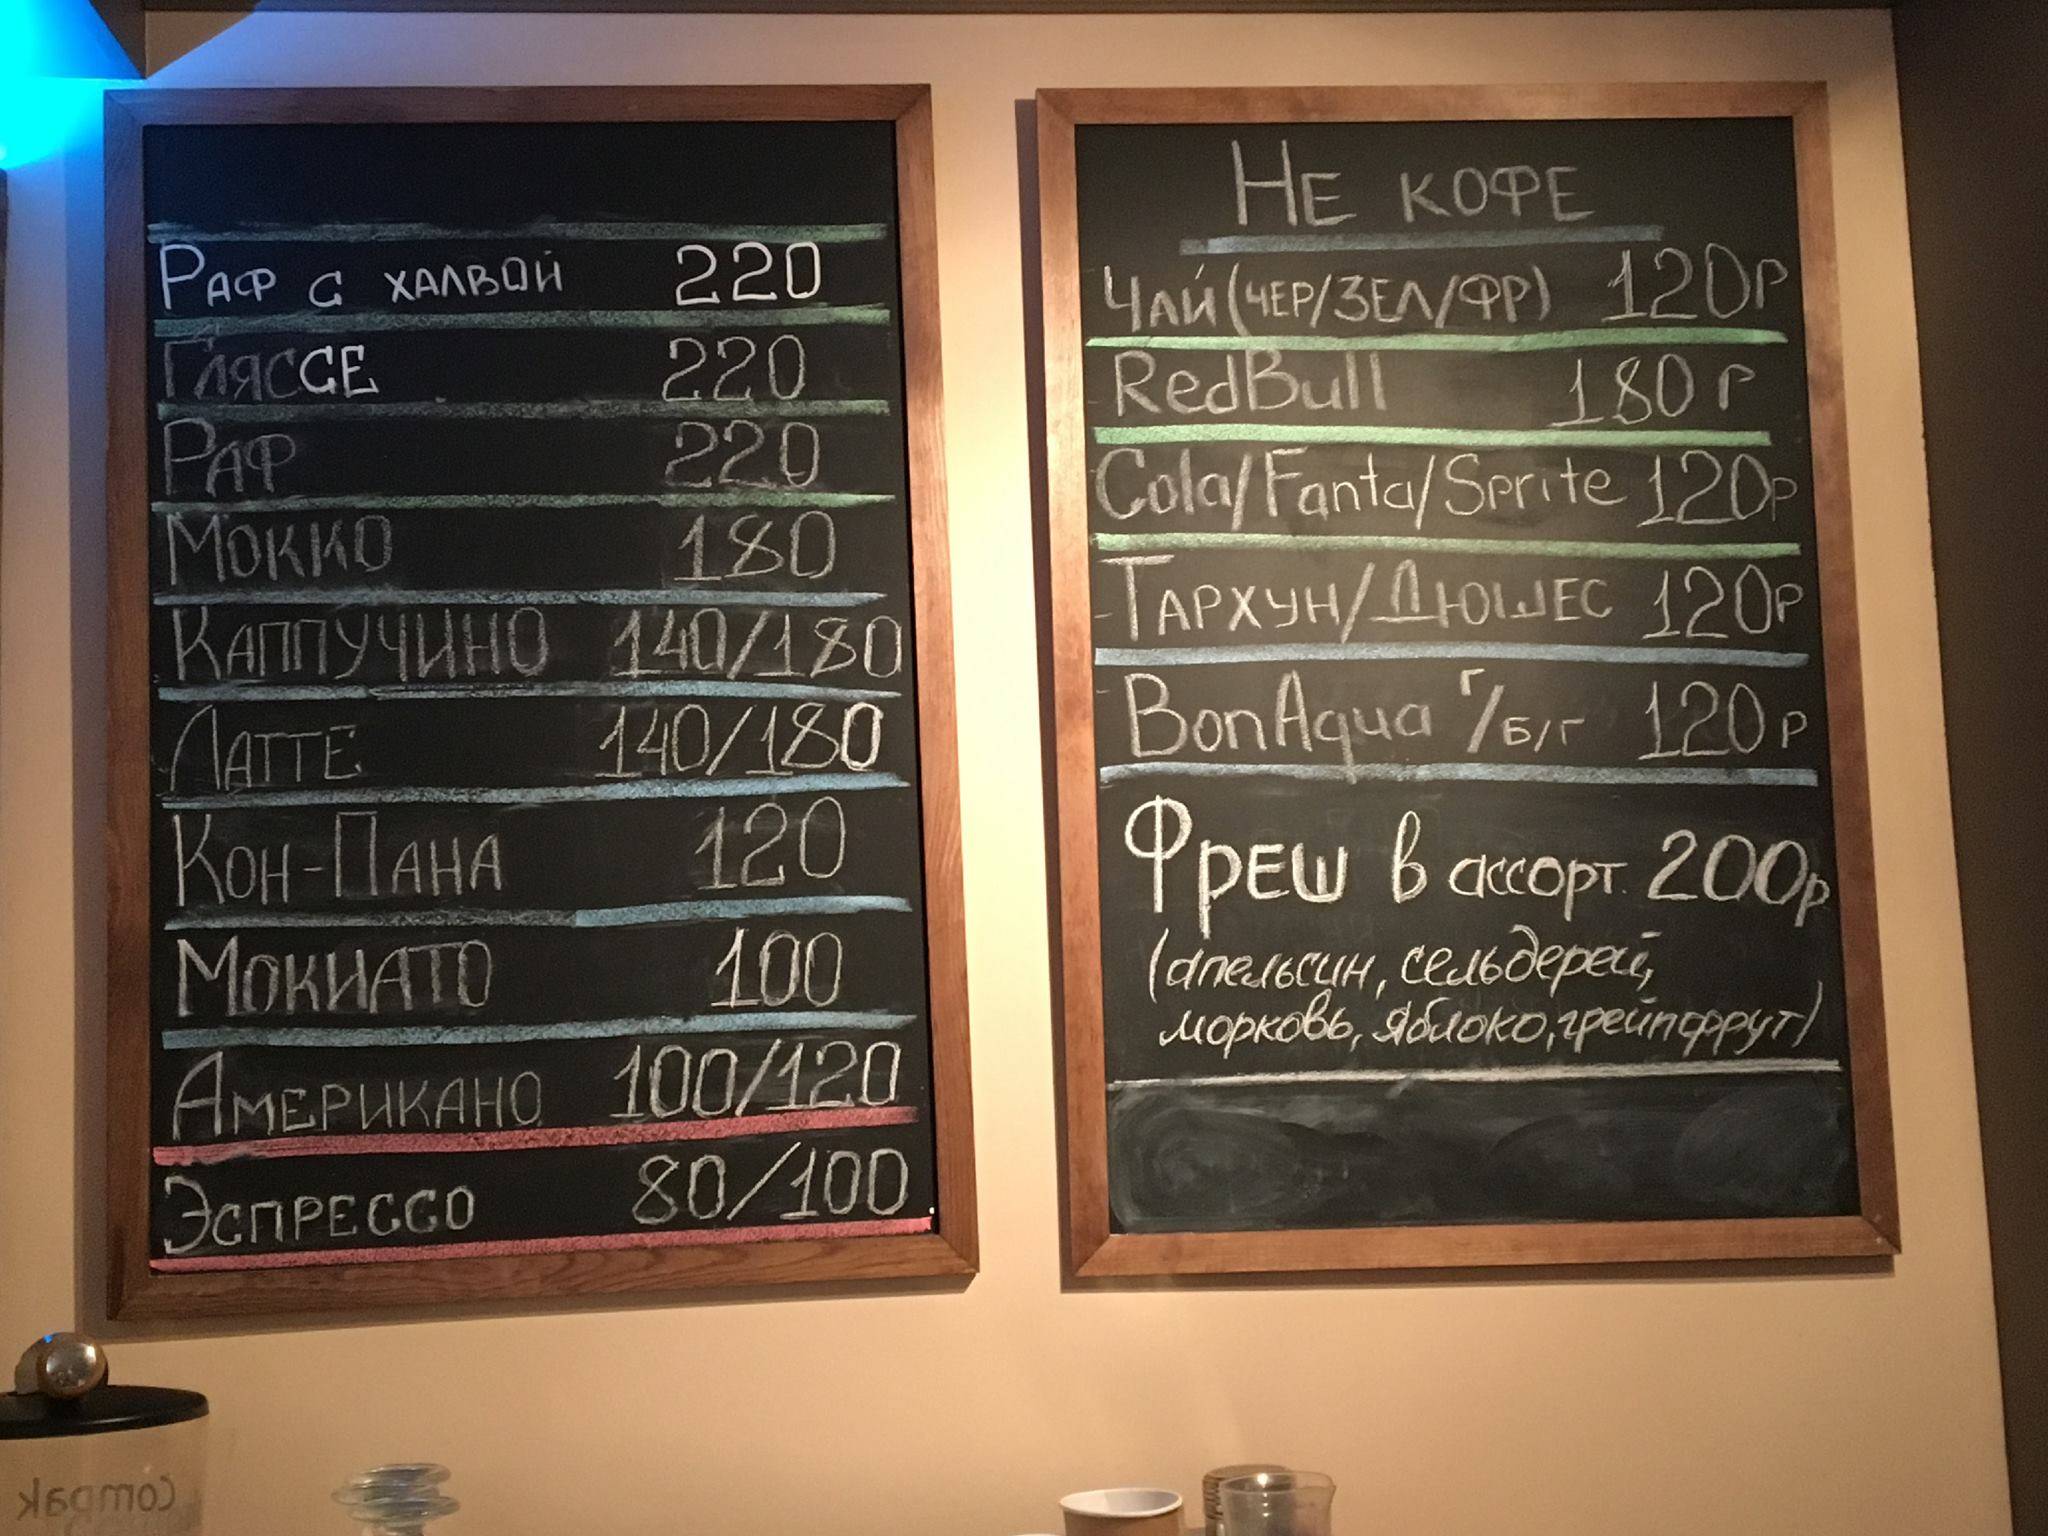 Раф с халвой 220
Глясcе 220
Раф 220
Мокко 180
Каппучино 140/180
Латте 140/180
Кон-Пана 120
Мокиато 100
Американо 100/120
Эспрессо 80/100
Не кофе
Чай (чер/зел/фр) 120р
RedBull 180 р
Cola/Fanta/Sprite 120р
Тархун/Дюшес 120р
BonAqua г/б/г 120р
Фреш в ассорт. 200р
(апельсин, сельдерей,
морковь, яблоко, грейпфрут)
Compak